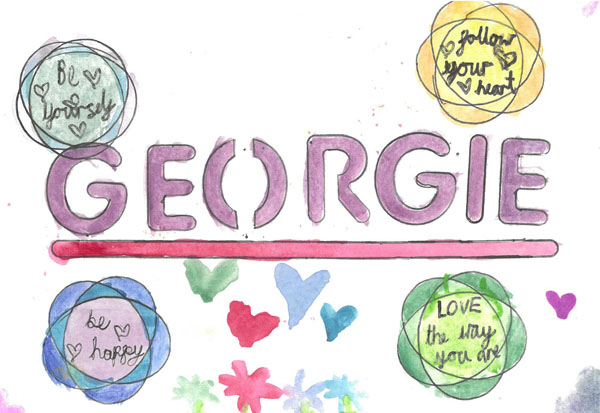 Be
Yourself
follow
your
heart
GEORGIE
be
happy
LOVE
the way
you are